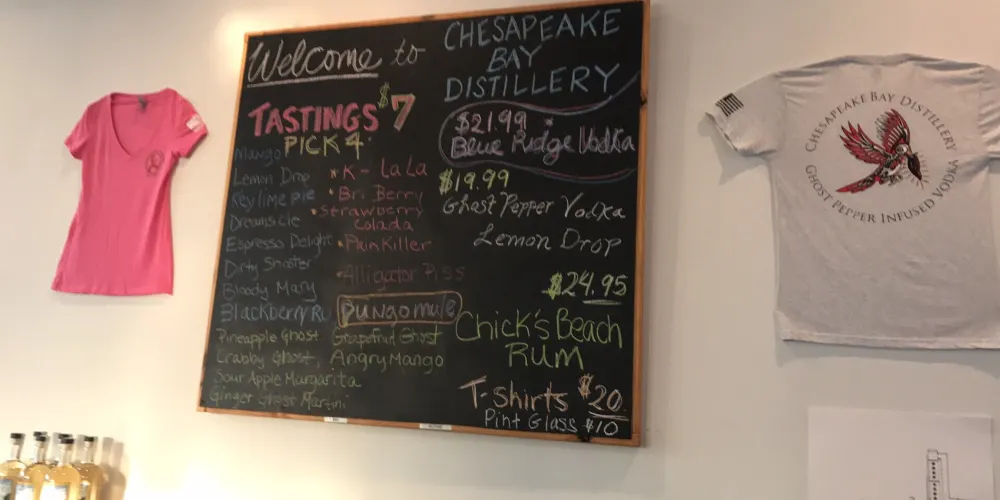 Welcome to
CHESAPEAKE
BAY
DISTILLERY
TASTINGS $7
PICK 4
Mango
Lemon Drop
Key lime pie
Dreamsicle
Espresso Delight
Dirty
Bloody Mary
Blackberry
Pineapple Ghost
Crabby Ghost
Sour Apple Margarita
Ginger Ghost Martini
* K-LaLa
* Bri Berry
* Strawberry
Colada
* PainKiller
* Alligator Piss
Bungomule
Grapefruit Ghost
Angry Mango
$21.99
Blue Ridge Vodka
$19.99
Ghost Pepper Vodka
Lemon Drop
$24.95
Chick's Beach
RUM
T-Shirts $20
Pint Glass $10
CHESAPEAKE BAY DISTILLERY
GHOST PEPPER INFUSED VODKA